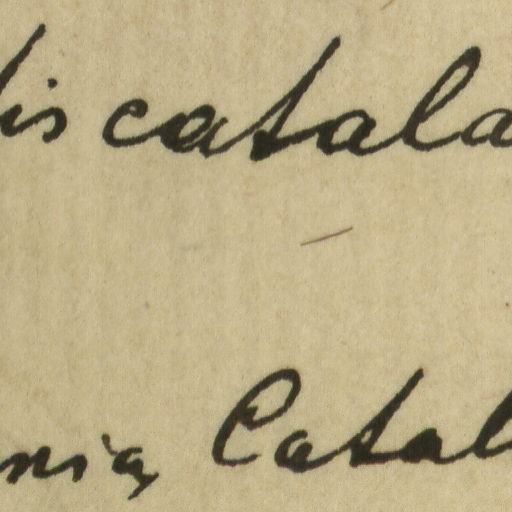 lis catala
nia, Catal